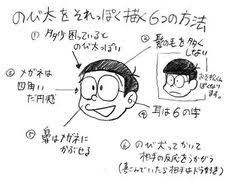 のび太をそれっぽく描く6つの方法
① タタ困っていると
のび太っぽい
② 髪の毛を多く
しない
おそ松くん
ぽくなり
ます。
③ メガネは
四角い
だ円形
④ 耳は6の字
⑤ 鼻はメガネに
かぶせる
⑥ のび太ってかいて
相手の反応をうかがう